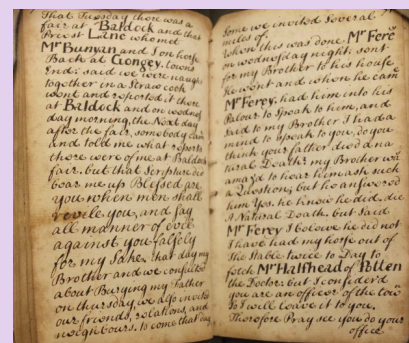 That Tuesday there was a
fair at Baldock and that
Priest Lane who met
Mr Bunyan and I on horse
Back at Gongey. towns
End: said we were naugh
together in a Straw cook
sent and reported it there
at Baldock and on wodnof
day morning, the Next day
after the fair, somebody Cam
and told me what reports
there were of me at Baldock
fair. but that Scripture did
bear me up Blessed are
you when men shall
revile you, and say
all manner of evil
against you falsely
for my Sake, that day my
Brother and we consulted
about Burying my Father
on thursday, we also invited
our friends, relations, and
neighbours. to come that day
Some we invited Several
miles of:
When this was done. Mr Fere
on wodnofday night: sent
for my Brother to his house
he went and when he came
Mr Ferey. had him into his
Palour to Speak to him, and
said to my Brother I had a
mind to Speak to you, do you
think your father died a na
tural Death: my Brother wa
amaz'd to hear him ask such
a Question, but he answered
him Yes. he knew he did, die
A Natural Death, but Said
Mr Ferey I beleve he did not
I have had my horse out of
the Stable twice to Day to
fetch Mr Halfhead of Potten
the Doctor, but I confider'd
you are an officer of the tow
so I will leave it to you.
Therefore Pray see you do your
office